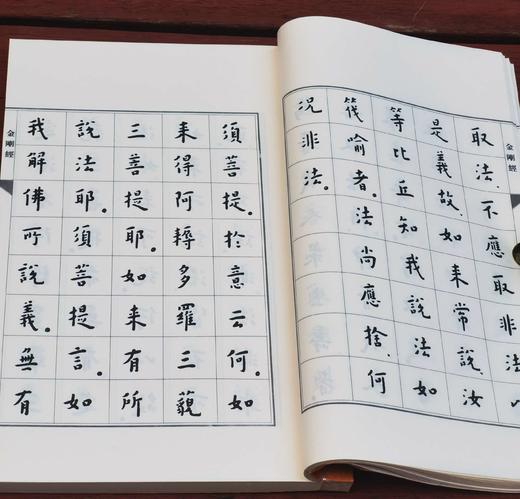 金剛經
取法。不應取非法。以
是義故。如来常說。汝
等比丘知我說法如
筏喻者。法尚應捨。何
況非法。
須菩提。於意云何。如
来得阿耨多羅三藐
三菩提耶。如来有所
說法耶。須菩提言。如
我解佛所說義。無有
金剛經